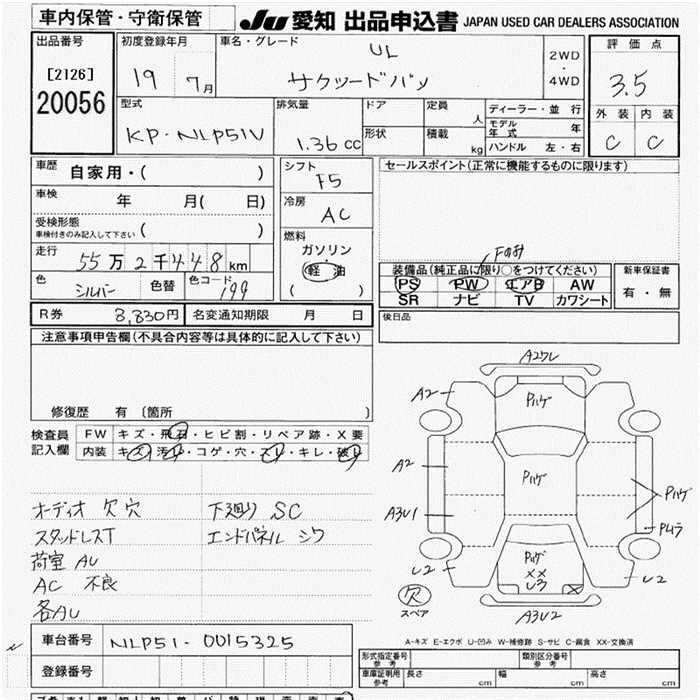 車内保管・守衛保管
JU 愛知 出品申込書 JAPAN USED CAR DEALERS ASSOCIATION
出品番号
[2126]
20056
初度登録年月
19 7月
車名・グレード
UL
サクシードバン
2WD
・
4WD
評価点
3.5
外装 内装
C C
型式
KP-NLP51V
排気量
1.36cc
ドア
形状
定員
人
積載
kg
ディーラー・並行
モデル年式 年
ハンドル 左・右
車歴 自家用・( )
車検 年 月( 日)
受検形態
車検付きのみ記入して下さい ( )
走行 55万2千448km
色 シルバー 色替 色コード 199
シフト
F5
冷房
AC
燃料
ガソリン
・
軽油
( )
セールスポイント(正常に機能するものに限ります)
Fのみ
装備品(純正品に限り○をつけてください)
PS PW エアB AW
SR ナビ TV カワシート
新車保証書
有・無
R券 8,830円 名変通知期限 月 日
後日品
注意事項申告欄(不具合内容等は具体的に記入して下さい)
修復歴 有 〔箇所 〕
検査員
記入欄
FW キズ・飛石・ヒビ割・リペア跡・X要
内装 キズ・汚レ・コゲ・穴・スレ・キレ・破レ
オーディオ 欠 穴 下廻り SC
スタッドレスT エンドパネル シワ
荷室 AU
AC 不良
各AU
A2ワレ
A2
Pハゲ
A2
Pハゲ
Pハゲ
A3U1
Pムラ
U2
Pハゲ
××
U3
×
U2
欠
スペア
A3U2
A-キズ E-エクボ U-凹み W-補修跡 S-サビ C-腐食 XX-交換済
車台番号 NLP51-0015325
登録番号
形式指定番号
参考
類別区分番号
参考
車庫証明用
参考
長さ cm 幅 cm 高さ cm